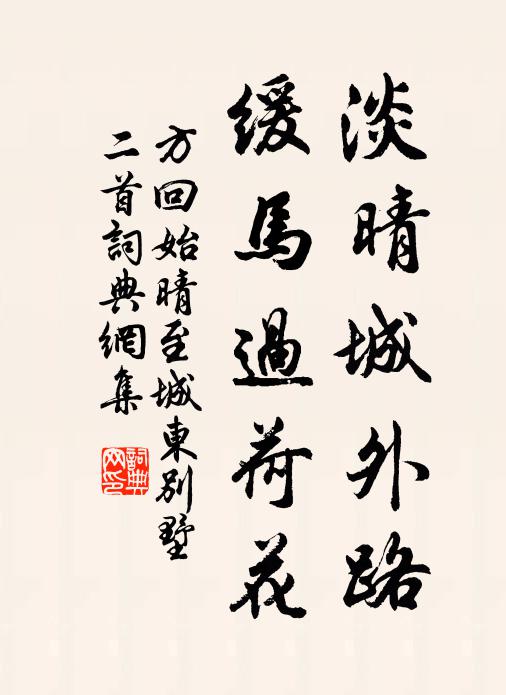 淡晴城外路
緩馬過荷花
方回始晴至城東別墅
二首詞典網集
詞典
网印